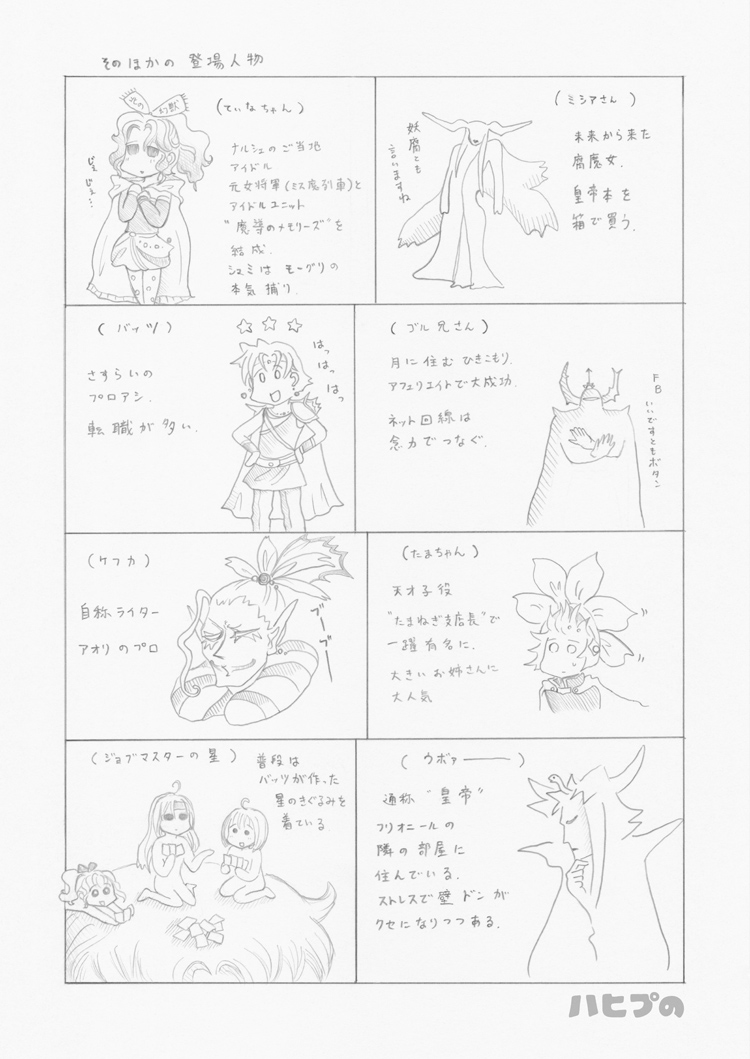 そのほかの 登場人物
北の幻獣
(てぃなちゃん)
じぇ
じぇ…
ナルシェのご当地
アイドル
元女将軍(ミス魔列車)と
アイドルユニット
"魔導のメモリーズ"を
結成.
シュミはモーグリの
本気捕り.
(ミシアさん)
妖腐とも
言いますね
未来から来た
腐魔女.
皇帝本を
箱で買う.
(バッツ)
さすらいの
プロアシ.
転職が多い.
はっ
はっ
はっ
(ゴル兄さん)
月に住むひきこもり.
アフェリエイトで大成功.
ネット回線は
念力でつなぐ.
FB
いいですともボタン
(ケフカ)
自称ライター
アオリのプロ
ブーブー
(たまちゃん)
天才子役
"たまねぎ支店長"で
一躍有名に.
大きいお姉さんに
大人気
(ジョブマスターの星)
普段は
バッツが作った
星のきぐるみを
着ている
(ウボァー)
通称"皇帝"
フリオニールの
隣の部屋に
住んでいる.
ストレスで壁ドンが
クセになりつつある.
ハヒプの